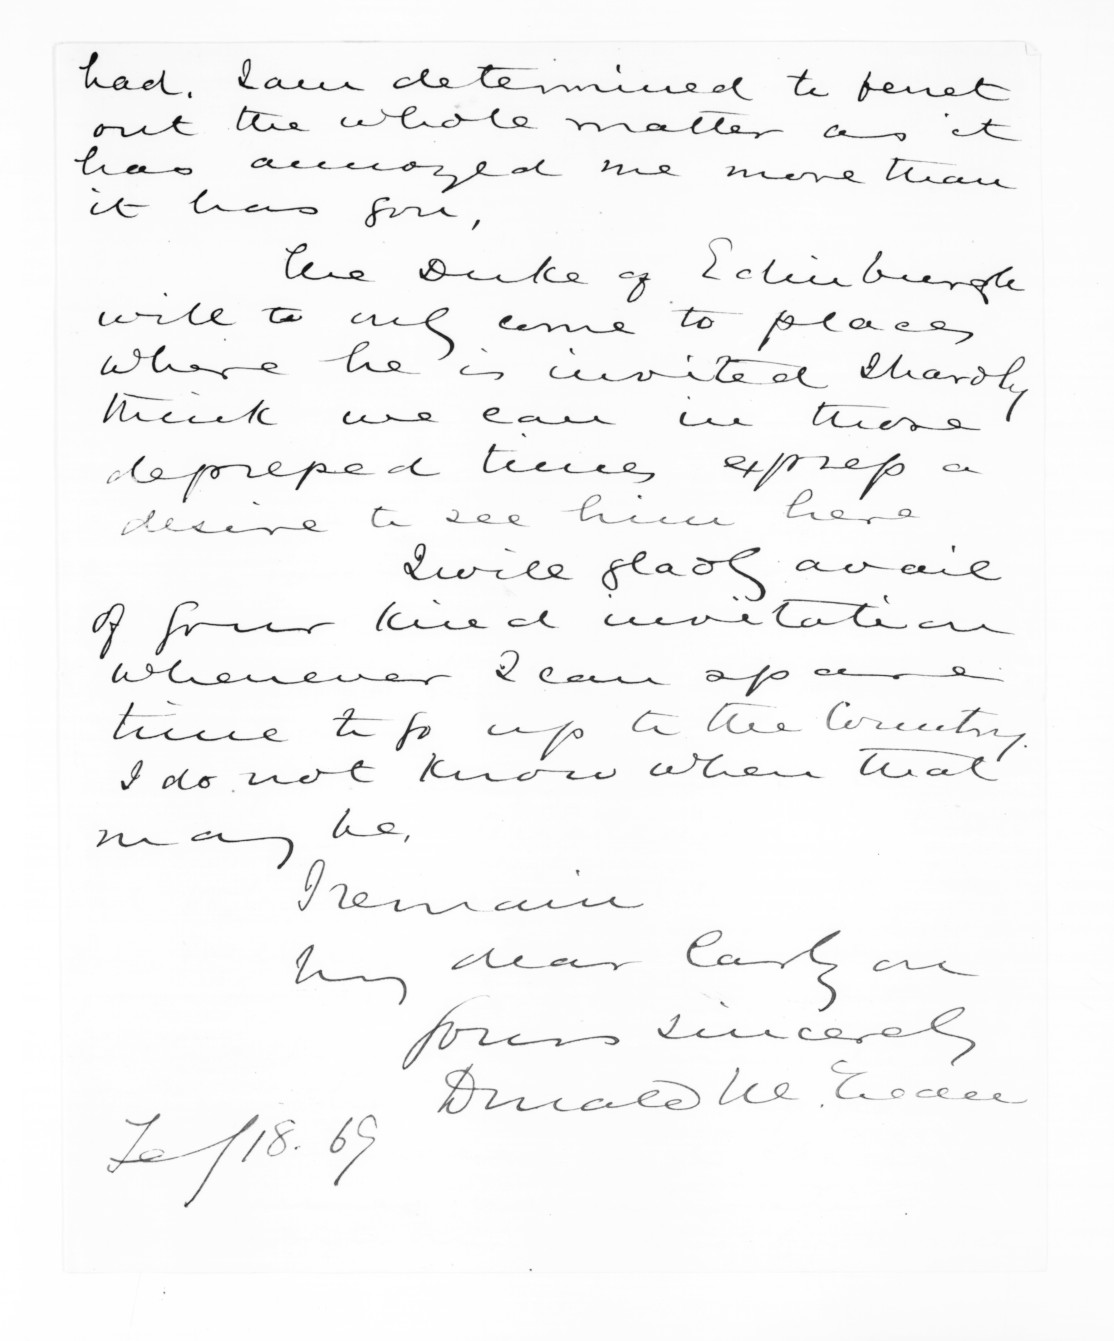 had. I am determined to ferret
out the whole matter as it
has annoyed me more than
it has you,
The Duke of Edinburgh
will to only come to places
where he is invited I hardly
think we can in those
depressed times express a
desire to see him here
I will gladly avail
of your kind invitation
whenever I can spare
time to go up to the Country.
I do not know when that
may be.
I remain
My dear Carlyon
Yours sincerely
Donald McLean
Feb 18. 69